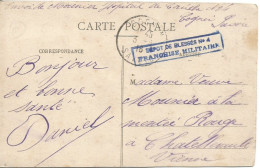 CARTE POSTALE
CORRESPONDANCE
DÉPOT DE BLESSÉS No 4
FRANCHISE MILITAIRE
Bonjour
et bonne
santé
Daniel
Madame Veuve
Mounier à la
montée Rouge
à Chatellerault
Vienne